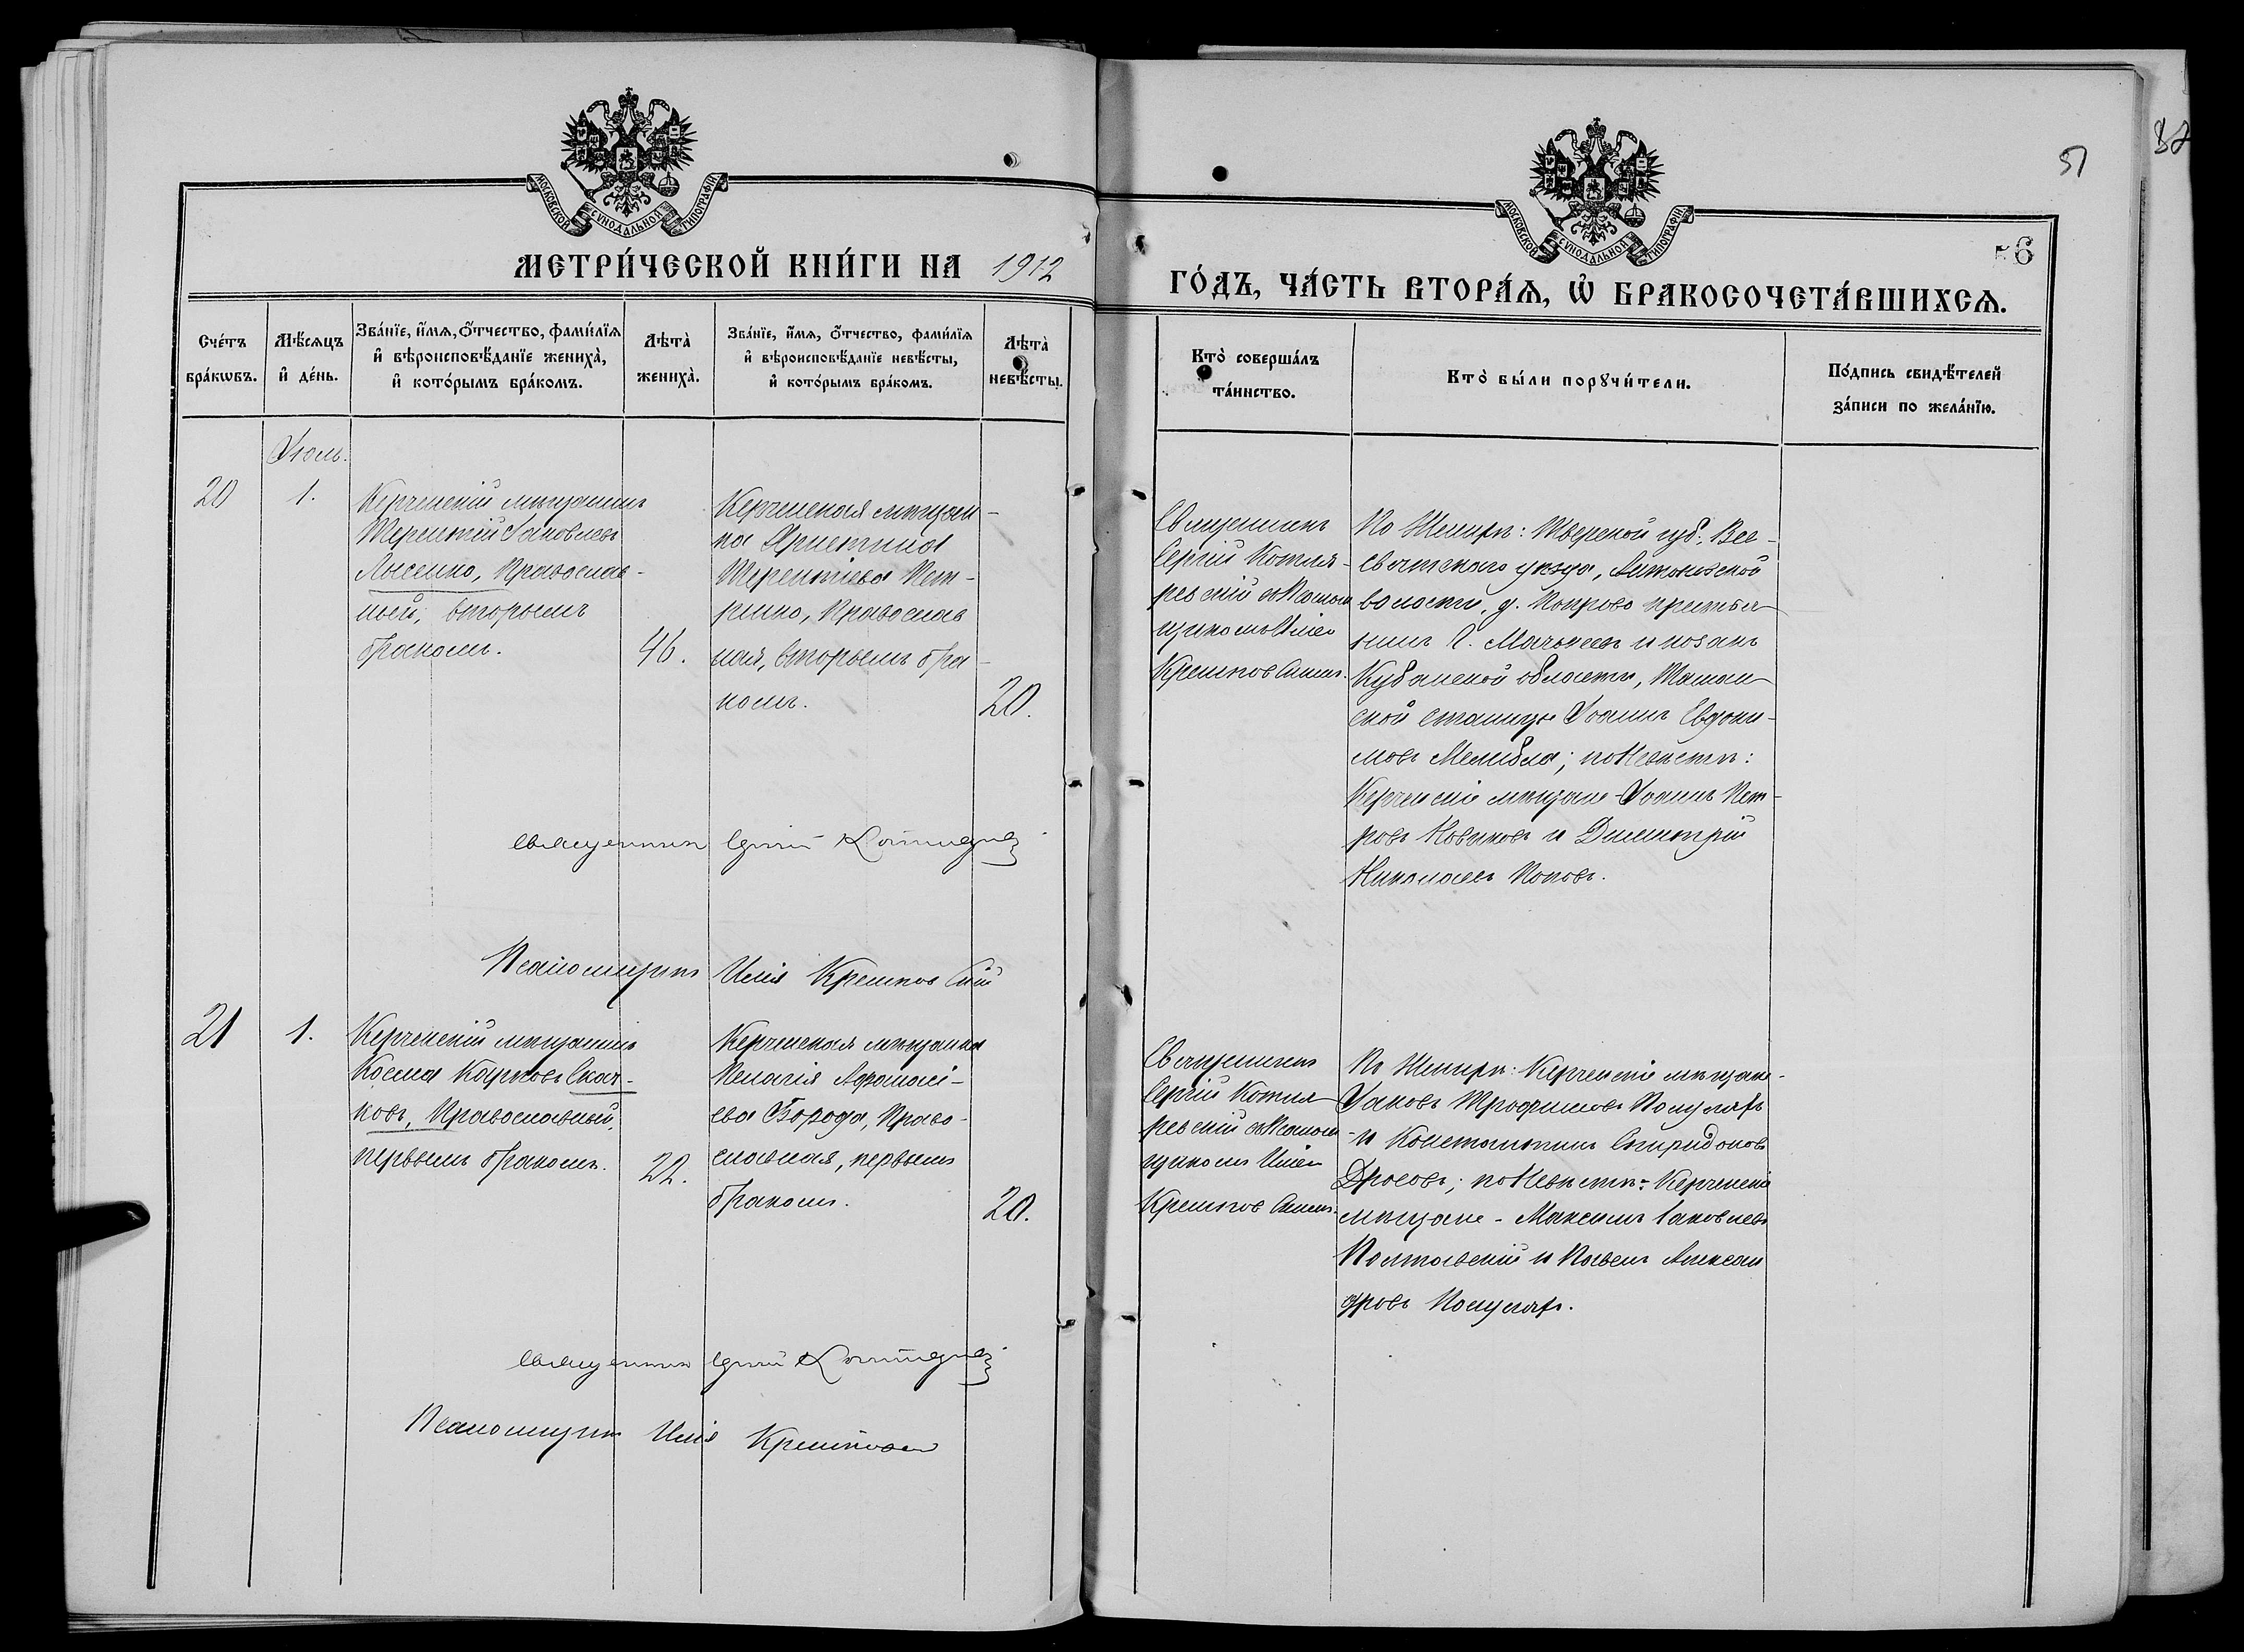 51
МОСКОВСКОЙ СѴНОДАЛЬНОЙ ТИПОГРАФІИ
МОСКОВСКОЙ СѴНОДАЛЬНОЙ ТИПОГРАФІИ
56
МЕТРИ́ЧЕСКОЙ КНИ́ГИ НА 1912
ГО́ДЪ, ЧА́СТЬ ВТОРА́Ѧ, Ѽ БРАКОСОЧЕТА́ВШИХСѦ.
Сче́тъ
бра́кѡвъ.
Мѣ́сѧцъ
и҆ де́нь.
Зва́нїе, и҆́мѧ, ѻ҆́тчество, фами́лїѧ
и҆ вѣроисповѣ́данїе жениха̀,
и҆ кото́рымъ бра́комъ.
Лѣта̀
жениха̀.
Зва́нїе, и҆́мѧ, ѻ҆́тчество, фами́лїѧ
и҆ вѣроисповѣ́данїе невѣ́сты,
и҆ кото́рымъ бра́комъ.
Лѣта̀
невѣ́сты.
Кто̀ соверша́лъ
та́инство.
Кто̀ бы́ли порꙋчи́тели.
По́дпись свидѣ́телей
за́писи по жела́нїю.
Іюль.
20
1.
Керченскій мѣщанинъ
Терентій Іаковлевъ
Лысенко, Православ-
ный, вторымъ
бракомъ.
46.
Керченская мѣщан-
ка Христина
Терентіева Пет-
ренко, Православ
ная, вторымъ бра-
комъ.
20.
Священникъ
Сергій Котля-
ревскій съ Псалом
щикомъ Иліею
Крешковскимъ.
По Женихѣ: Тверской губ., Вес-
уѣзда,
волости, д. крестья-
нинъ и козакъ
Кубанской области, Таман-
ской станицы Іоаннъ Евдоки-
мовъ по Невѣстѣ:
Керченскіе мѣщане Іоаннъ Пет-
ровъ Новиковъ и Димитрій
Николаевъ Поповъ.
Священникъ Сергій
Псаломщикъ Илія Крешковскій
21
1.
Керченскій мѣщанинъ
Косма Карповъ Скач-
ковъ, Православный,
первымъ бракомъ.
22.
Керченская мѣщанка
Пелагія Афанасі-
ева Борода, Право-
славная, первымъ
бракомъ.
20.
Священникъ
Сергій Котля-
ревскій съ Псалом
щикомъ Иліею
Крешковскимъ.
По Женихѣ: Керченскіе мѣщане-
Іаковъ Трофимовъ Полуляхъ
и Константинъ Спиридоновъ
Дросовъ; по Невѣстѣ: Керченскіе
мѣщане - Максимъ Іаковлевъ
Полтавскій и Павелъ Алексан
дровъ Полуляхъ.
Священникъ Сергій
Псаломщикъ Илія Крешковскій